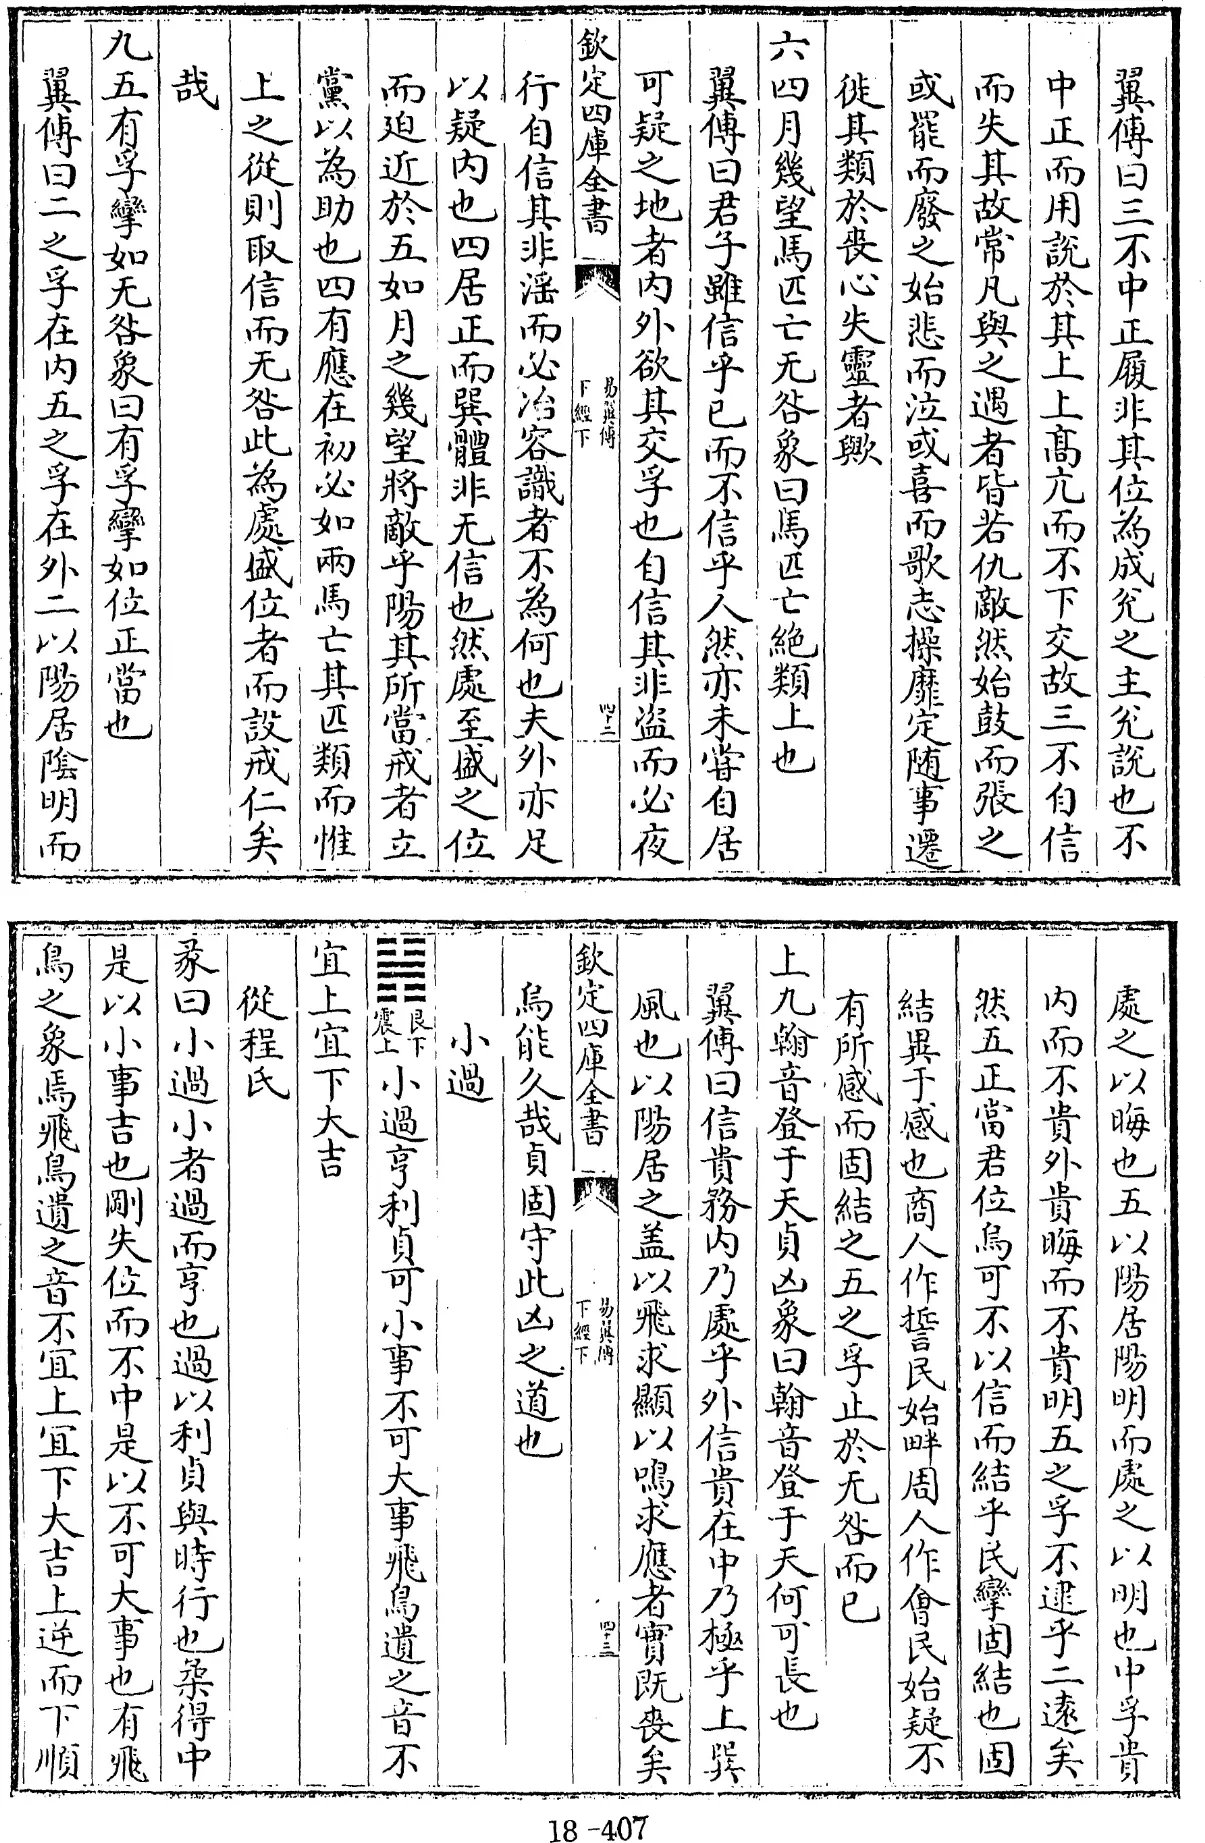 翼傳曰三不中正履非其位為成兊之主兊說也不
中正而用說於其上上髙亢而不下交故三不自信
而失其故常凡與之遇者皆若仇敵然始鼓而張之
或罷而廢之始悲而泣或喜而歌志操靡定随事遷
徙其類於喪心失靈者歟
六四月幾望馬匹亡无咎象曰馬匹亡絶類上也
翼傳曰君子雖信乎已而不信乎人然亦未甞自居
可疑之地者内外欲其交孚也自信其非盗而必夜
欽定四庫全書
易翼傳
下經下
四十二
行自信其非淫而必冶容識者不為何也夫外亦足
以疑内也四居正而巽體非无信也然處至盛之位
而迫近於五如月之幾望將敵乎陽其所當戒者立
黨以為助也四有應在初必如兩馬亡其匹類而惟
上之從則取信而无咎此為處盛位者而設戒仁矣
哉
九五有孚攣如无咎象曰有孚攣如位正當也
翼傳曰二之孚在内五之孚在外二以陽居陰明而
處之以晦也五以陽居陽明而處之以明也中孚貴
内而不貴外貴晦而不貴明五之孚不逮乎二逺矣
然五正當君位烏可不以信而結乎民攣固結也固
結異于感也商人作誓民始畔周人作㑹民始疑不
有所感而固結之五之孚止於无咎而已
上九翰音登于天貞凶象曰翰音登于天何可長也
翼傳曰信貴務内乃處乎外信貴在中乃極乎上巽
風也以陽居之盖以飛求顯以鳴求應者實既喪矣
欽定四庫全書
易翼傳
下經下
四十三
烏能久哉貞固守此凶之道也
小過
艮下
震上
小過亨利貞可小事不可大事飛鳥遺之音不
宜上宜下大吉
從程氏
彖曰小過小者過而亨也過以利貞與時行也柔得中
是以小事吉也剛失位而不中是以不可大事也有飛
鳥之象焉飛鳥遺之音不宜上宜下大吉上逆而下順
18-407